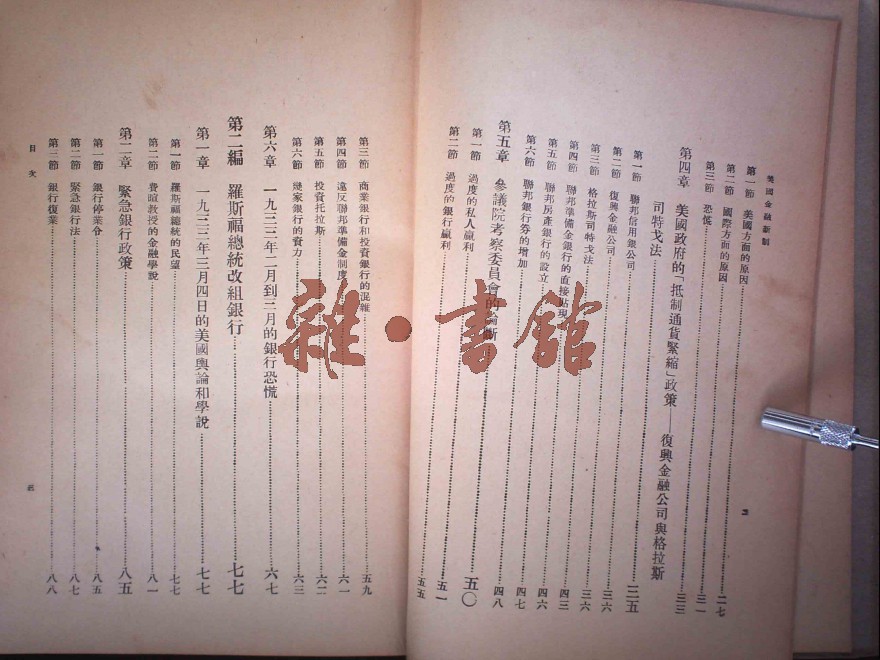 美國金融新制
第一節 美國方面的原因
第二節 國際方面的原因……二七
第三節 恐慌……三一
第四章 美國政府的「抵制通貨緊縮」政策——復興金融公司與格拉斯
司特戈法……三三
第一節 聯邦信用銀公司……三五
第二節 復興金融公司……三六
第三節 格拉斯司特戈法……三六
第四節 聯邦準備金銀行的直接貼現……四三
第五節 聯邦房產銀行的設立……四六
第六節 聯邦銀行券的增加……四七
第五章 參議院考察委員會的論斷……四八
第一節 過度的私人贏利……五〇
第二節 過度的銀行贏利……五一
五五
第三節 商業銀行和投資銀行的混雜……五九
第四節 違反聯邦準備金制度……六一
第五節 投資托拉斯……六二
第六節 幾家銀行的實力……六三
第六章 一九三三年二月到三月的銀行恐慌……六七
第二編 羅斯福總統改組銀行……七七
第一章 一九三三年三月四日的美國輿論和學說……七七
第一節 羅斯福總統的民望……七七
第二節 費暄教授的金融學說……八一
第二章 緊急銀行政策……八五
第一節 銀行停業令……八五
第二節 緊急銀行法……八七
第三節 銀行復業……八八
目次
雜·書館